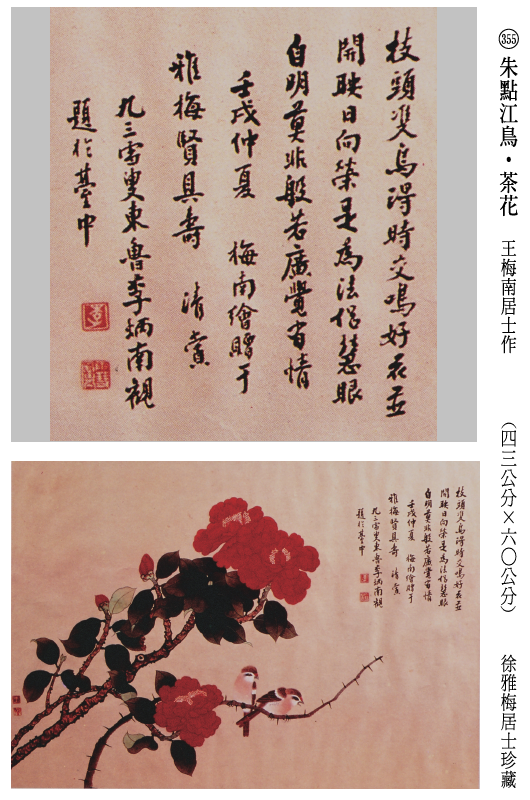 355 朱點江鳥・茶花 王梅南居士作 (四三公分×六〇公分) 徐雅梅居士珍藏
枝頭雙鳥得時交鳴好花並
開映日向榮是為法侶慧眼
自明莫非般若廣覺有情
壬戌仲夏 梅南繪贈于
雅梅賢具壽 清賞
九三雪叟東魯李炳南視
題於臺中
枝頭雙鳥得時交鳴好花並
開映日向榮是為法侶慧眼
自明莫非般若廣覺有情
壬戌仲夏 梅南繪贈于
雅梅賢具壽 清賞
九三雪叟東魯李炳南視
題於臺中